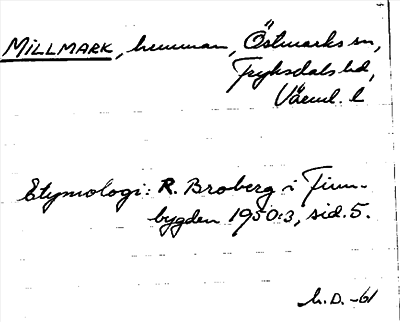 MILLMARK, hemman, Östmarks sn,
Fryksdals hd,
Värml. l
Etymologi: R. Broberg i Finn-
bygden 1950:3, sid. 5.
h.D. -61